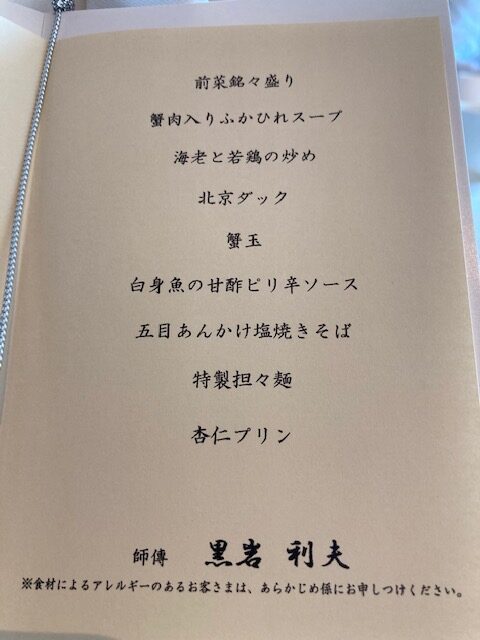 前菜銘々盛り
蟹肉入りふかひれスープ
海老と若鶏の炒め
北京ダック
蟹玉
白身魚の甘酢ピリ辛ソース
五目あんかけ塩焼きそば
特製担々麺
杏仁プリン
師傳 黒岩 利夫
※食材によるアレルギーのあるお客さまは、あらかじめ係にお申しつけください。